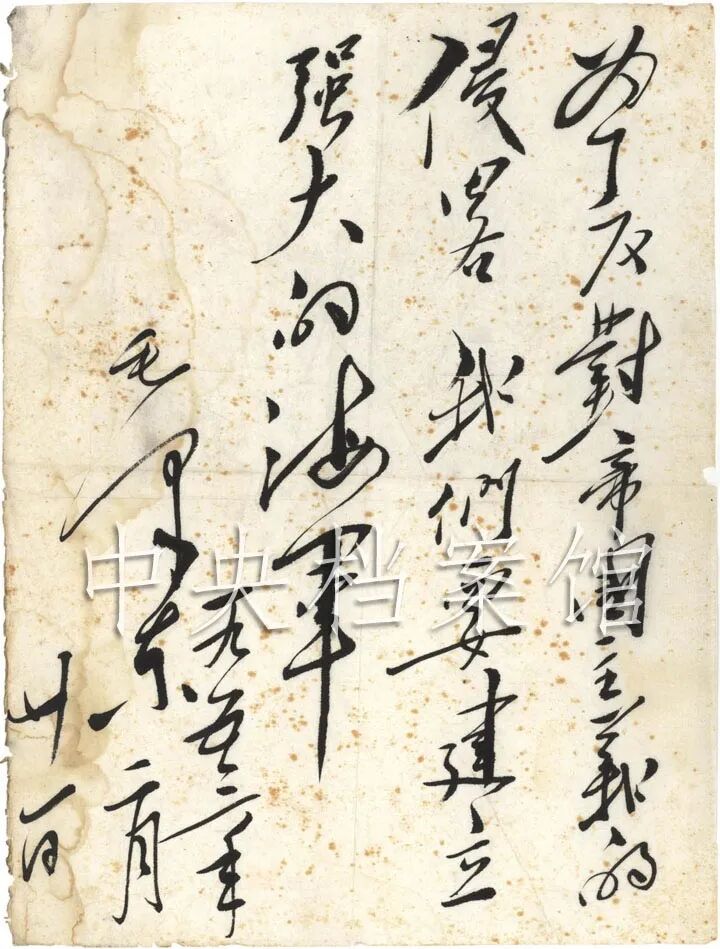 为了反對帝國主義的
侵畧 我們要建立
强大的海軍
毛泽东
一九五三年
二月
廿一日
中央档案馆